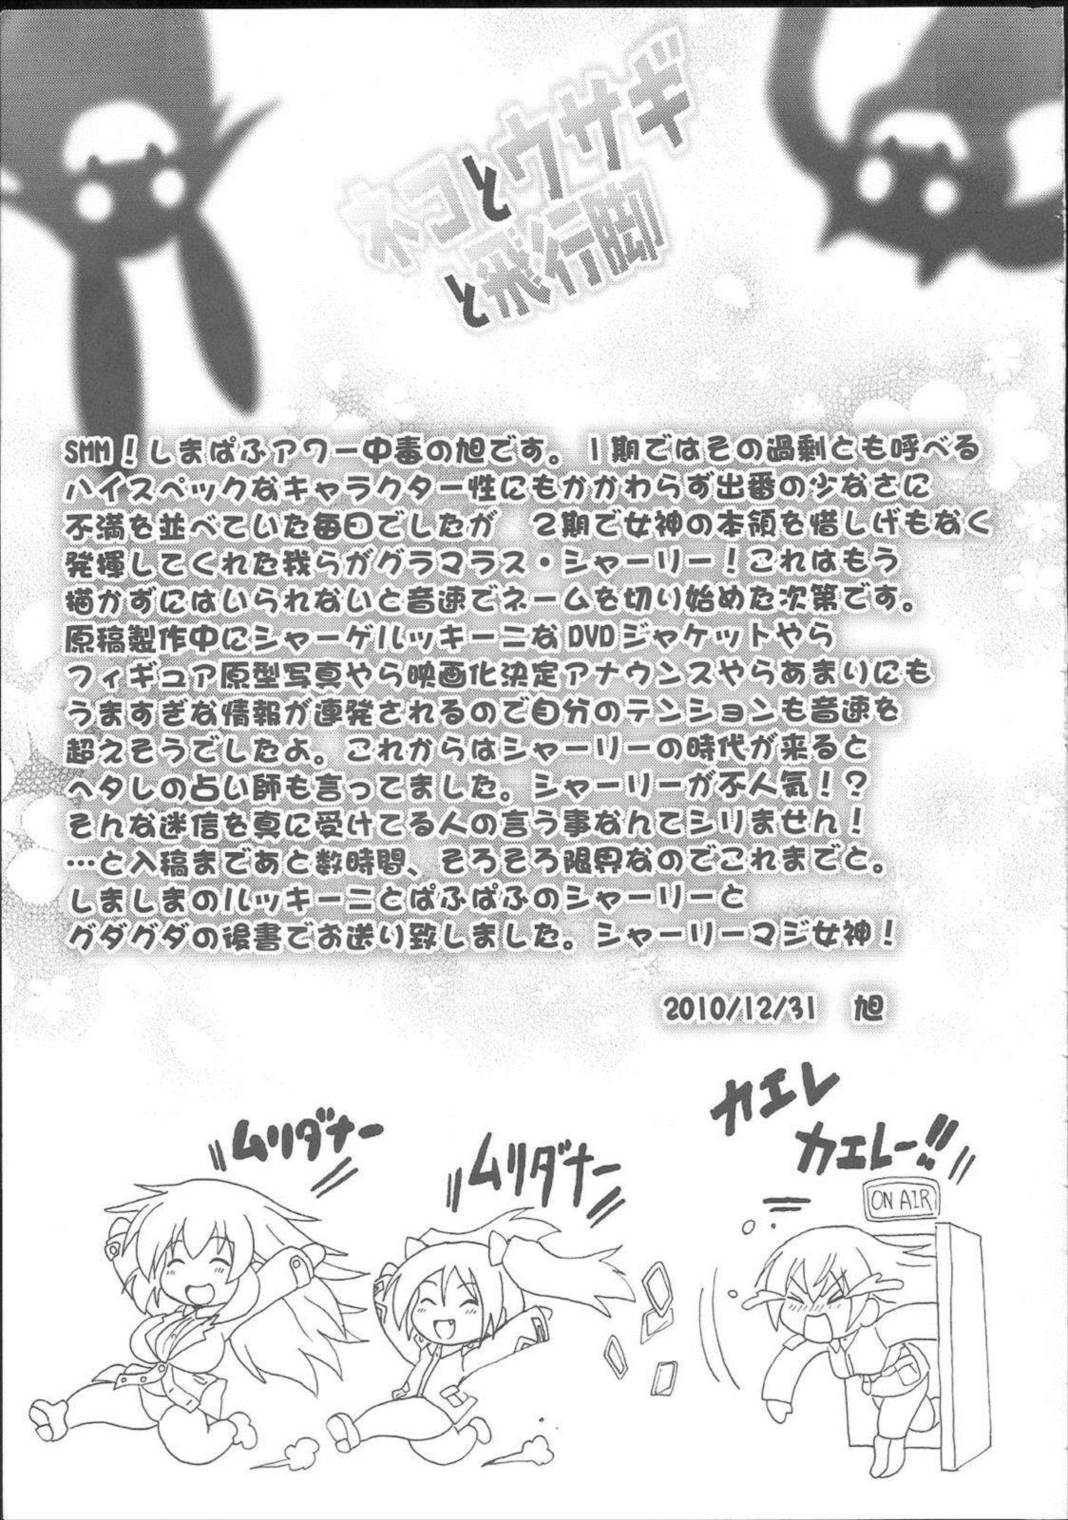 ネコとウサギ
と飛行脚
SMM！しまぱふアワー中毒の旭です。1期ではその過剰とも呼べる
ハイスペックなキャラクター性にもかかわらず出番の少なさに
不満を並べていた毎日でしたが　2期で女神の本領を惜しげもなく
発揮してくれた我らがグラマラス・シャーリー！これはもう
描かずにはいられないと音速でネームを切り始めた次第です。
原稿製作中にシャーゲルッキーニなDVDジャケットやら
フィギュア原型写真やら映画化決定アナウンスやらあまりにも
うますぎな情報が連発されるので自分のテンションも音速を
超えそうでしたよ。これからはシャーリーの時代が来ると
ヘタレの占い師も言ってました。シャーリーが不人気！？
そんな迷信を真に受けてる人の言う事なんてシリません！
…と入稿まであと数時間、そろそろ限界なのでこれまでと。
しましまのルッキーニとぱふぱふのシャーリーと
グダグダの後書でお送り致しました。シャーリーマジ女神！
2010/12/31　旭
カエレ
カエレー!!
ムリダナー
ムリダナー
ON AIR